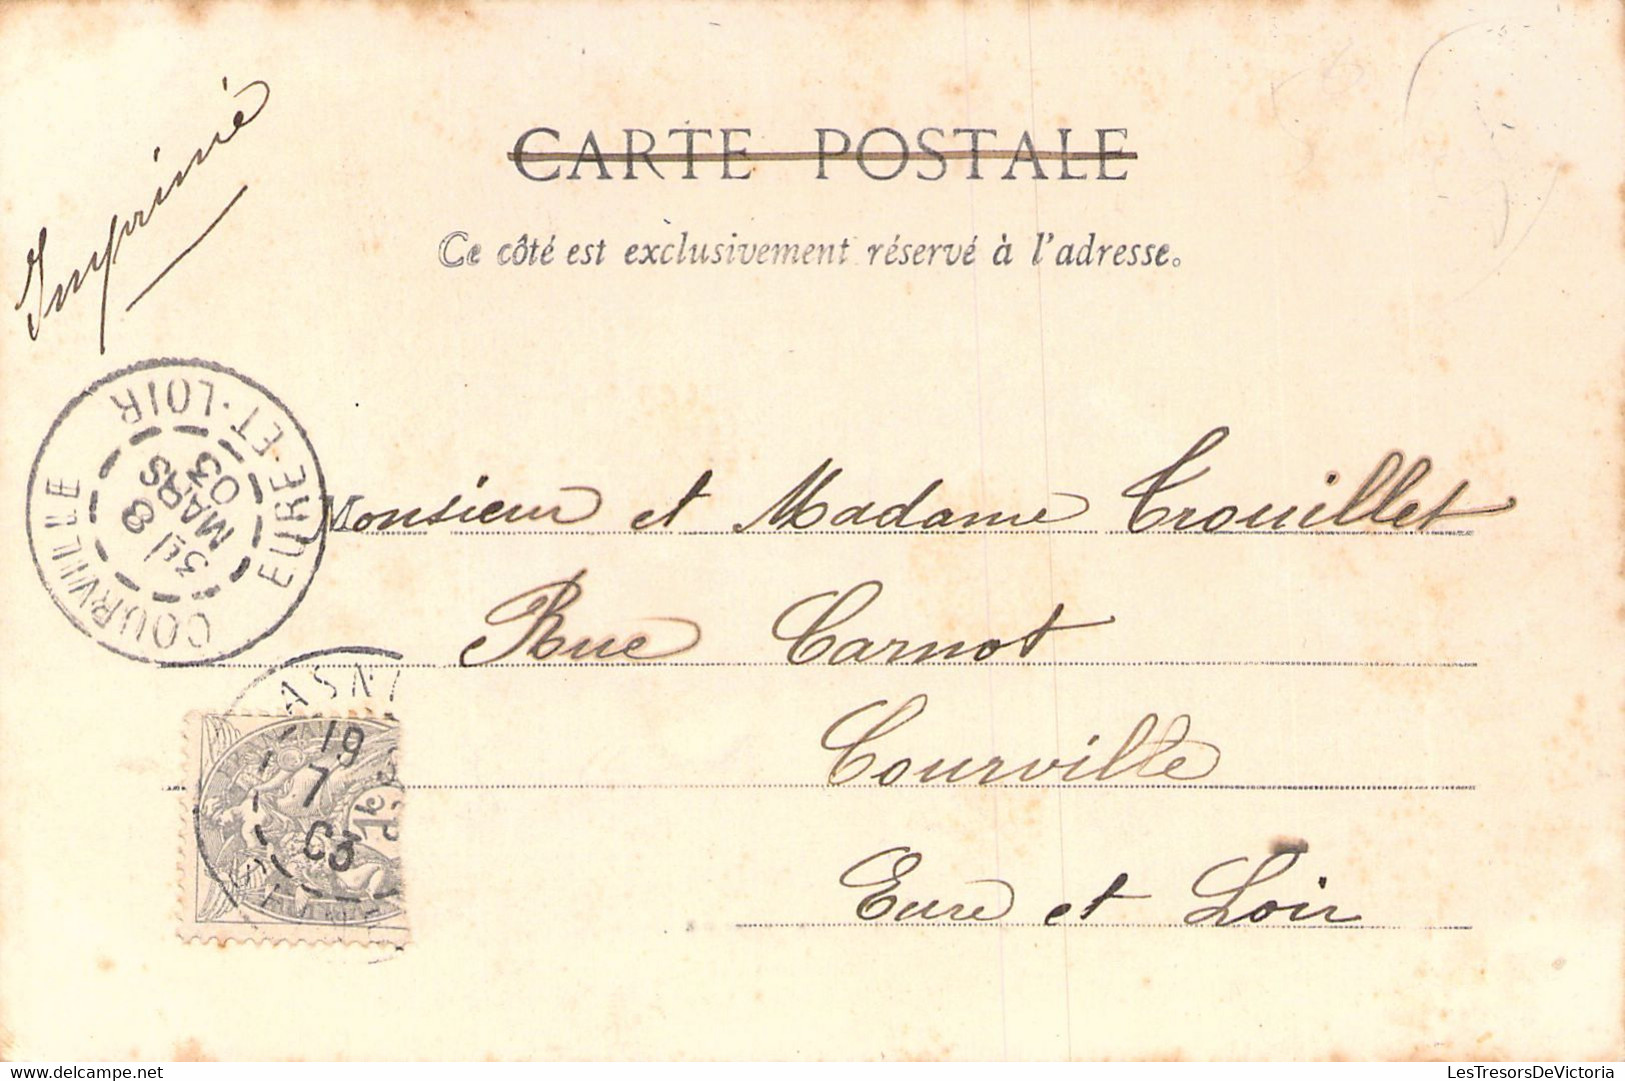 Imprimé
CARTE POSTALE
Ce côté est exclusivement réservé à l'adresse.
COURVILLE
EURE-ET-LOIR
8
MARS
03
Monsieur et Madame Trouillet
Rue Carnot
Courville
Eure et Loir
19
7
03
1c
delcampe.net
LesTresorsDeVictoria